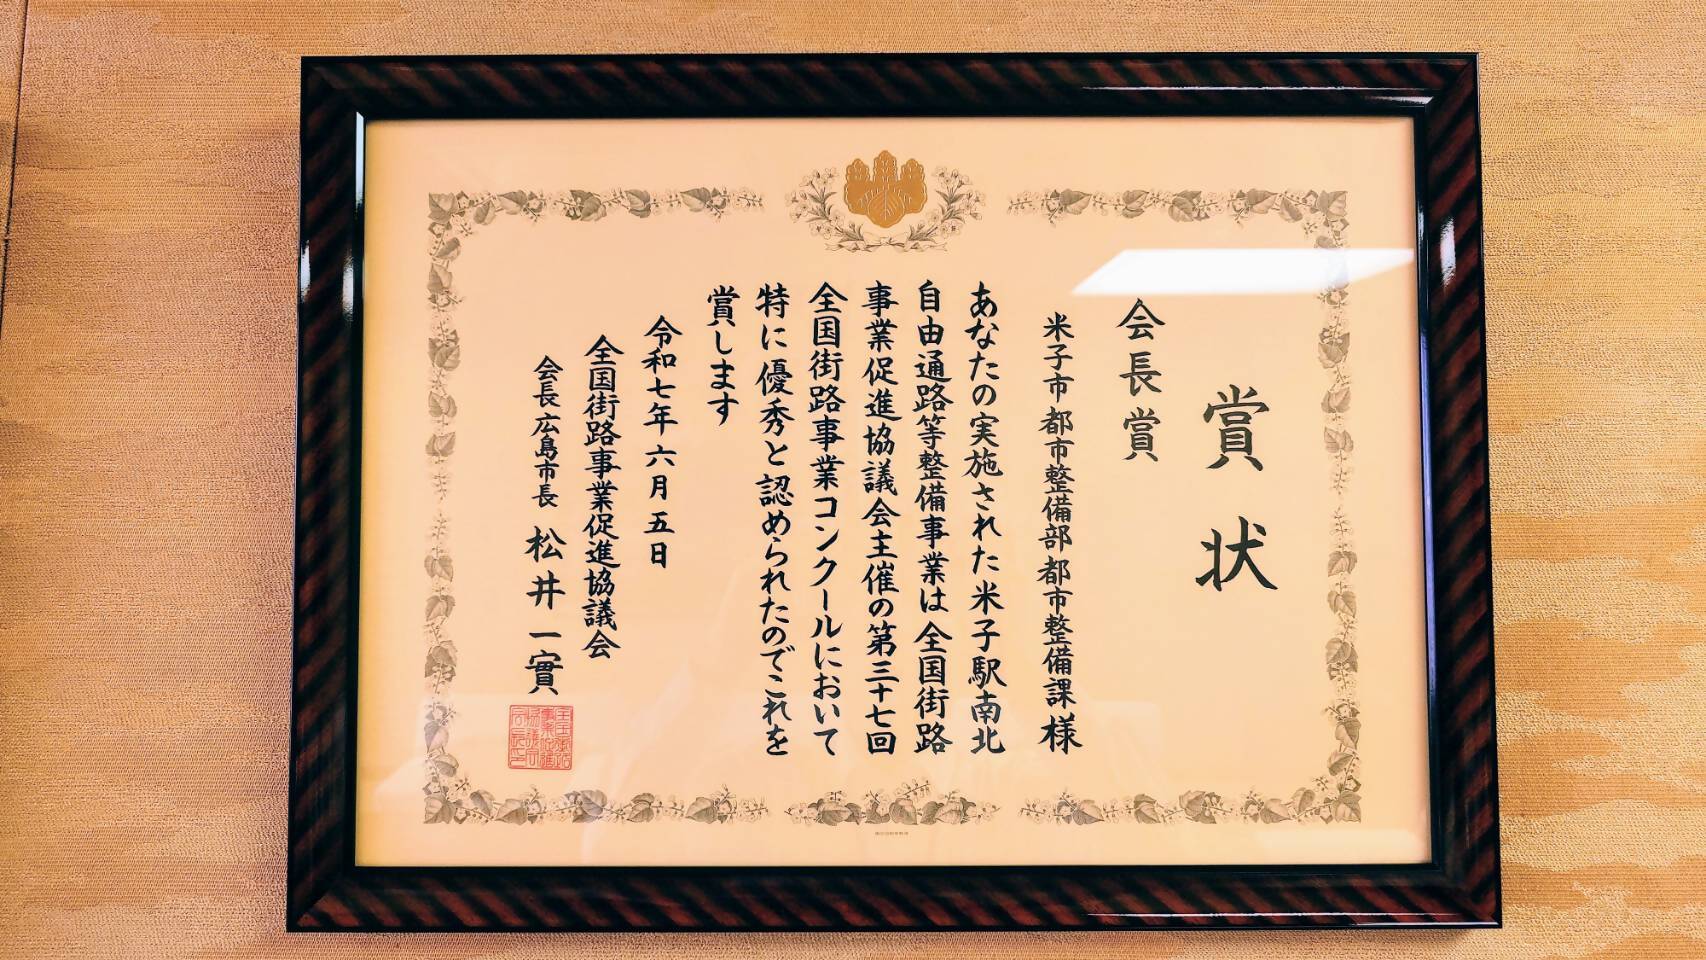 賞状
会長賞
米子市都市整備部都市整備課様
あなたの実施された米子駅南北
自由通路等整備事業は全国街路
事業促進協議会主催の第三十七回
全国街路事業コンクールにおいて
特に優秀と認められたのでこれを
賞します
令和七年六月五日
全国街路事業促進協議会
会長広島市長 松井一實